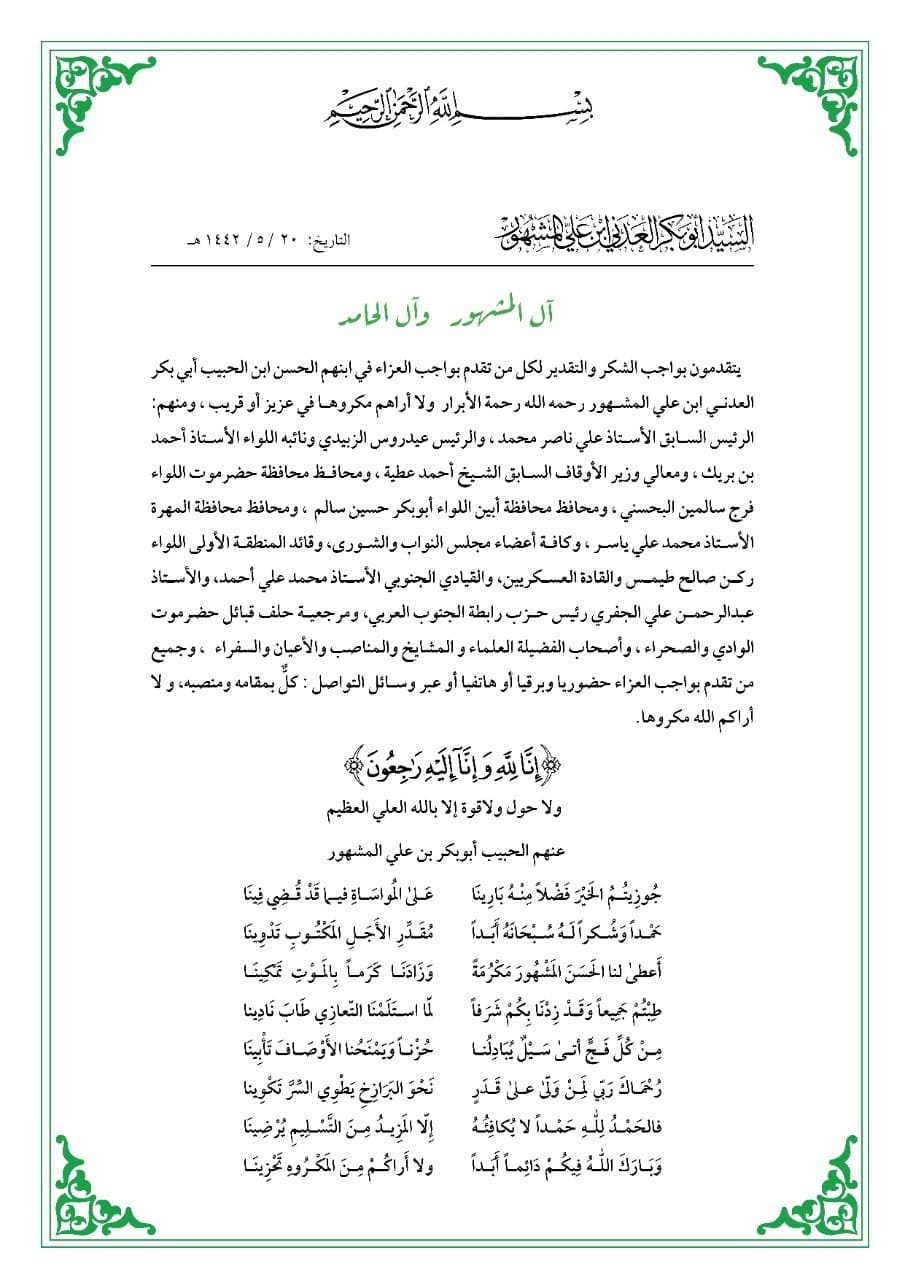 بِسْمِ اللَّهِ الرَّحْمَنِ الرَّحِيمِ
السيد أبوبكر العدني ابن علي المشهور
التاريخ: ٢٠ / ٥ / ١٤٤٢ هـ
آل المشهور وآل الحامد
يتقدمون بواجب الشكر والتقدير لكل من تقدم بواجب العزاء في ابنهم الحسن ابن الحبيب أبي بكر
العدني ابن علي المشهور رحمه الله رحمة الأبرار ولا أراهم مكروها في عزيز أو قريب ، ومنهم:
الرئيس السابق الأستاذ علي ناصر محمد ، والرئيس عيدروس الزبيدي ونائبه اللواء الأستاذ أحمد
بن بريك ، ومعالي وزير الأوقاف السابق الشيخ أحمد عطية ، ومحافظ محافظة حضرموت اللواء
فرج سالمين البحسني ، ومحافظ محافظة أبين اللواء أبوبكر حسين سالم ، ومحافظ محافظة المهرة
الأستاذ محمد علي ياسر ، وكافة أعضاء مجلس النواب والشورى، وقائد المنطقة الأولى اللواء
ركن صالح طيمس والقادة العسكريين، والقيادي الجنوبي الأستاذ محمد علي أحمد، والأستاذ
عبدالرحمن علي الجفري رئيس حزب رابطة الجنوب العربي، ومرجعية حلف قبائل حضرموت
الوادي والصحراء ، وأصحاب الفضيلة العلماء و المشايخ والمناصب والأعيان والسفراء ، وجميع
من تقدم بواجب العزاء حضوريا وبرقيا أو هاتفيا أو عبر وسائل التواصل : كلٌّ بمقامه ومنصبه، و لا
أراكم الله مكروها.
﴿إِنَّا لِلَّهِ وَإِنَّآ إِلَيْهِ رَاجِعُونَ﴾
ولا حول ولاقوة إلا بالله العلي العظيم
عنهم الحبيب أبوبكر بن علي المشهور
جُوزِيتُمُ الخَيْرَ فَضْلاً مِنْهُ بَارِينَا عَلىٰ المُواسَاةِ فيما قَدْ قُضِي فِينَا
حَمْداً وَشُكراً لَهُ سُبْحَانَهُ أَبَداً مُقَدِّرِ الأَجَلِ المَكْتُوبِ تَدْوِينَا
أَعطىٰ لنا الحَسَنَ المَشْهُورَ مَكْرُمَةً وَزَادَنَا كَرَماً بِالمَوْتِ تَمْكِينَا
طِبْتُمْ جَمِيعاً وَقَدْ زِدْنَا بِكُمْ شَرَفاً لمّا استَلَمْنَا التّعازِي طَابَ نَادِينا
مِنْ كُلِّ فَجٍّ أتىٰ سَيْلٌ يُبَادِلُنا حُزْناً وَيَمْنَحُنا الأَوْصَافَ تَأْبِينَا
رُحْمَاكَ رَبِّي لِمَنْ وَلّىٰ علىٰ قَدَرٍ نَحْوَ البَرَازِخِ يَطْوِي السِّرَّ تَكْوِينا
فالحَمْدُ لِلّٰهِ حَمْداً لا يُكافِئُهُ إِلّا المَزِيدُ مِنَ التَّسْلِيمِ يُرْضِينَا
وَبَارَكَ اللهُ فِيكُمْ دَائِماً أَبَداً ولا أَراكُمْ مِنَ المَكْرُوهِ تَحْزِينَا